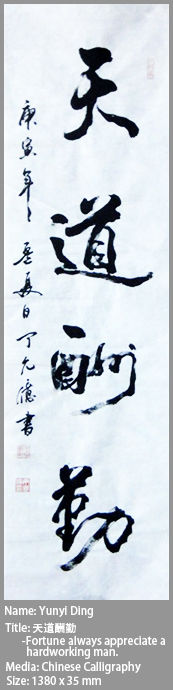 天道酬勤
庚寅年 夏日丁允書
Name: Yunyi Ding
Title: 天道酬勤
-Fortune always appreciate a
hardworking man.
Media: Chinese Calligraphy
Size: 1380 x 35 mm